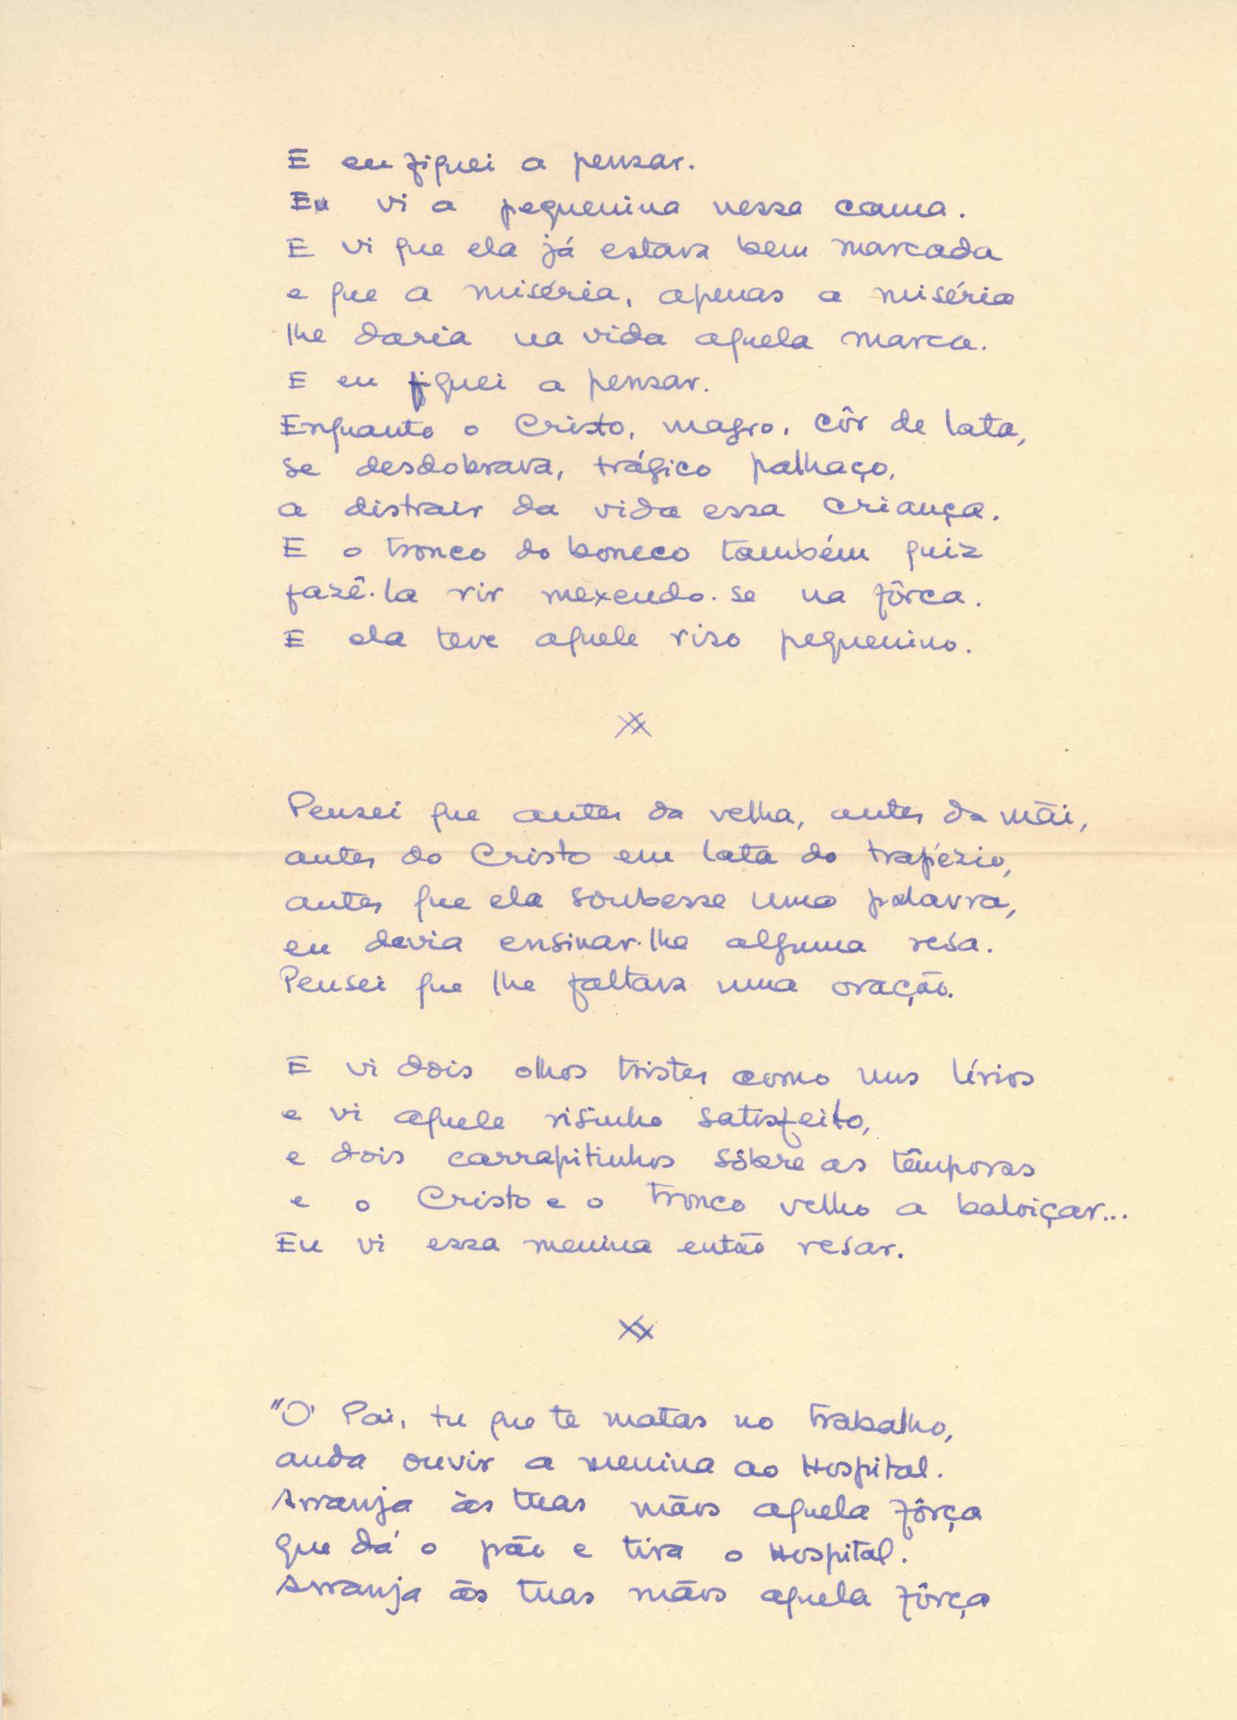 E eu fiquei a pensar.
Eu vi a pequenina nessa cama.
E vi que ela já estava bem marcada
e que a miséria, apenas a miséria
lhe daria na vida aquela marca.
E eu fiquei a pensar.
Enquanto o Cristo, magro, côr de lata,
se desdobrava, trágico palhaço,
a distrair da vida essa criança.
E o tronco do boneco também quiz
fazê-la rir mexendo-se na fôrca.
E ela teve aquele riso pequenino.
XX
Pensei que antes da velha, antes da mãi,
antes do Cristo em lata do trapézio,
antes que ela soubesse uma palavra,
eu devia ensinar-lhe alguma resa.
Pensei que lhe faltava uma oração.
E vi dois olhos tristes como uns lírios
e vi aquele risinho satisfeito,
e dois carrapitinhos sôbre as têmporas
e o Cristo e o tronco velho a baloiçar...
Eu vi essa menina então resar.
XX
"O' Pai, tu que te matas no trabalho,
anda ouvir a menina ao Hospital.
Arranja às tuas mãos aquela fôrça
que dá o pão e tira o Hospital.
Arranja às tuas mãos aquela fôrça